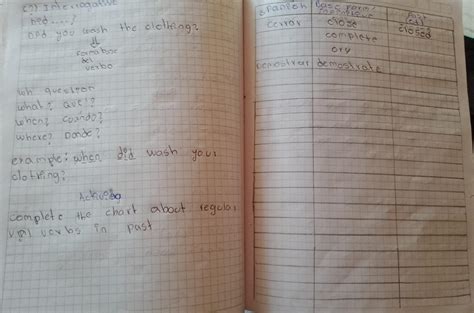 (?) Interrogative
Did you wash the clothing?
forma base
del
verbo
Wh question
what? que!?
when? cuando?
where? Donde?
example: when did wash you
clothing?
Activity
complete the chart about regular
verbs in past
spanish Base form/ past
cerrar close closed
complete
cry
demostrar demostrate